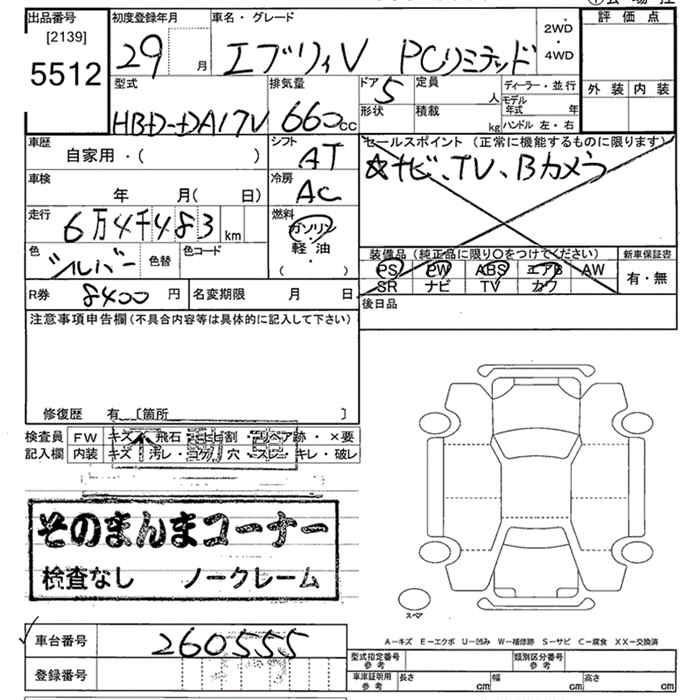 出品番号 初度登録年月 車名・グレード 2WD・4WD 評価点
[2139]
5512
29 月 エブリィV PCリミテッド
外装 内装
型式 排気量 ドア 定員 ディーラー・並行
HBD-DA17V 660cc 5 人 モデル年式 年
形状 積載 kg ハンドル 左・右
車歴 シフト セールスポイント (正常に機能するものに限ります)
自家用・( ) AT ☆ナビ、TV、Bカメラ
車検 冷房
年 月(日) AC
走行 燃料
6万4千483km ガソリン
軽油
( )
色 色替 色コード
シルバー
装備品 (純正品に限り〇をつけてください) 新車保証書
PS PW ABS エアB AW 有・無
SR ナビ TV カワ
R券 8400円 名変期限 月 日 後日品
注意事項申告欄(不具合内容等は具体的に記入して下さい)
修復歴 有 〔箇所 〕
検査員 FW キズ・飛石・ヒビ割・リペア跡・×要
記入欄 内装 キズ・汚レ・コゲ・穴・スレ・キレ・破レ
不動車
そのまんまコーナー
検査なし ノークレーム
スペア
A-キズ E-エクボ U-凹み W-補修跡 S-サビ C-腐食 XX-交換済
車台番号 260555
登録番号
型式指定番号 参考 類別区分番号 参考
車庫証明用 参考 長さ cm 幅 cm 高さ cm